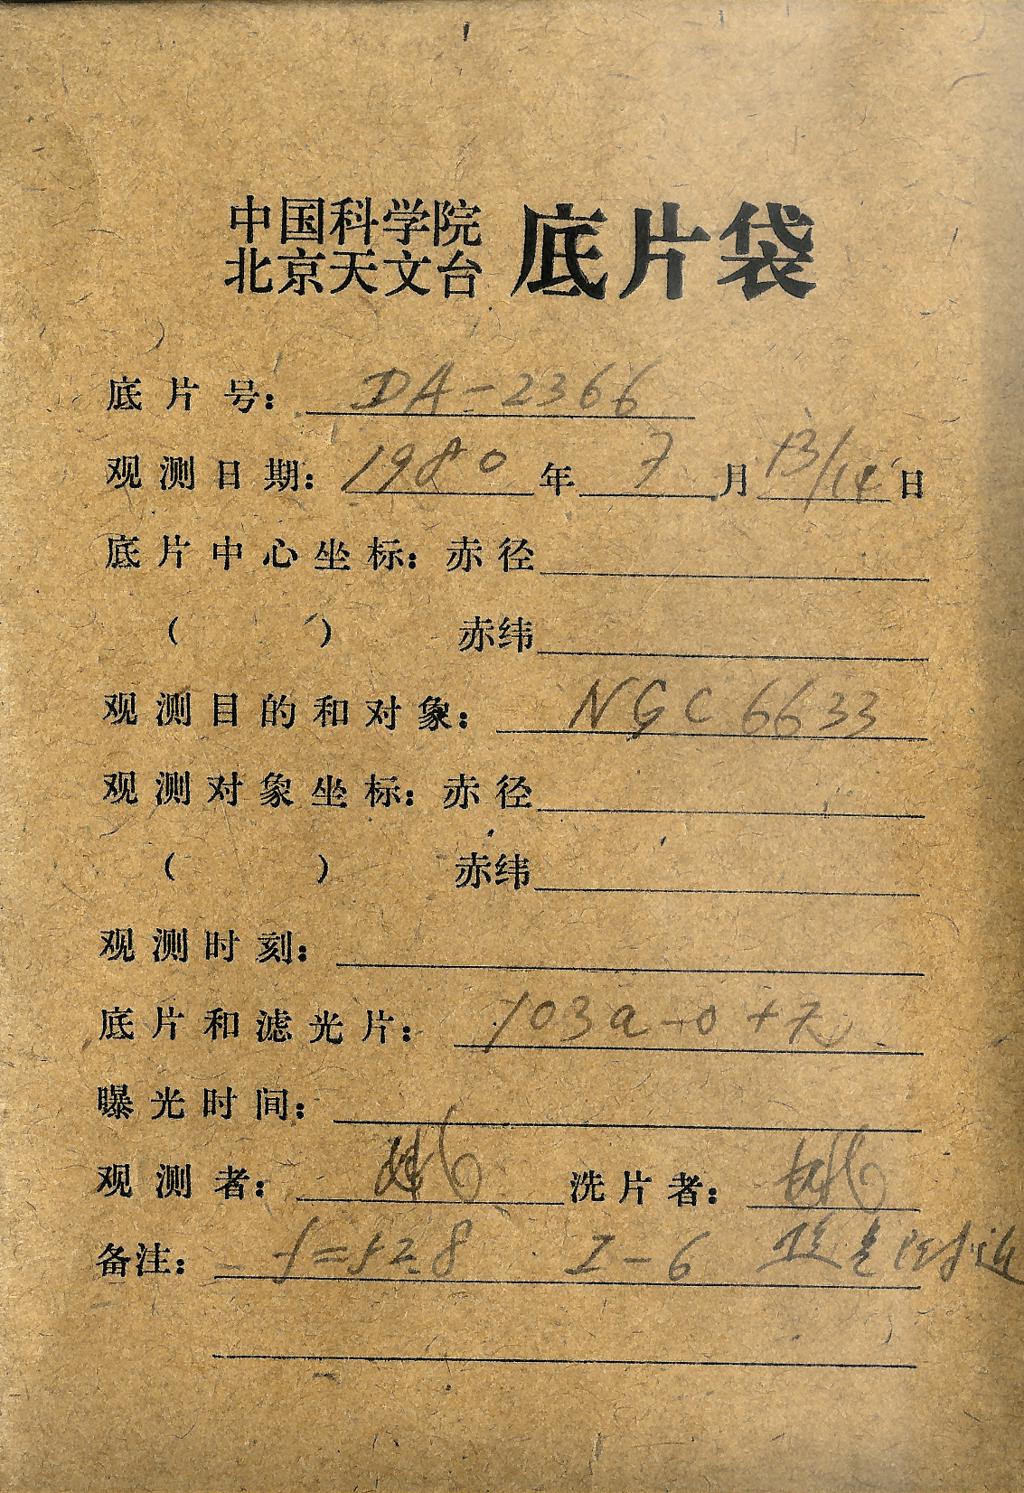 中国科学院
北京天文台 底片袋
底片号: DA-2366
观测日期: 1980年7月13/14日
底片中心坐标: 赤径
( ) 赤纬
观测目的和对象: NGC 6633
观测对象坐标: 赤径
( ) 赤纬
观测时刻:
底片和滤光片: 103a-0+无
曝光时间:
观测者: 洗片者:
备注: f=528 I-6 附近